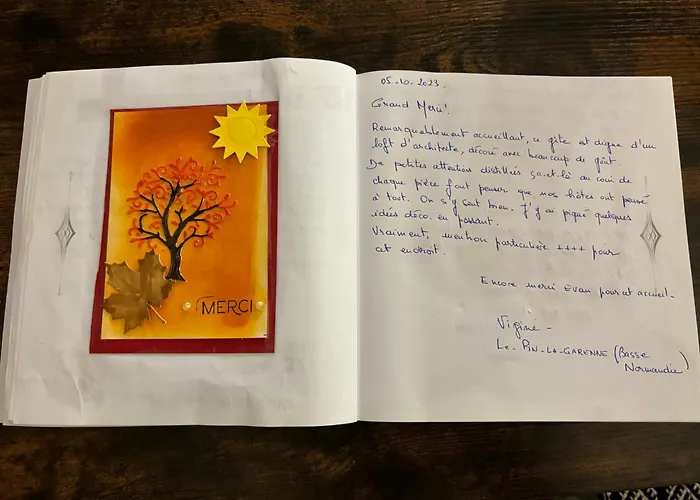 MERCI
05.10.2023.
Grand Merci!
Remarquablement accueillant, ce gîte est digne d'un
loft d'architecte, décoré avec beaucoup de goût.
De petites attentions distillées ça-et-là au coin de
chaque pièce font penser que nos hôtes ont pensé
à tout. On s'y sent bien. J'y ai piqué quelques
idées déco. en passant.
Vraiment, mention particulière ++++ pour
cet endroit.
Encore merci Evan pour cet accueil-
Le-PIN-LA-GARENNE (BASSE
Normandie)